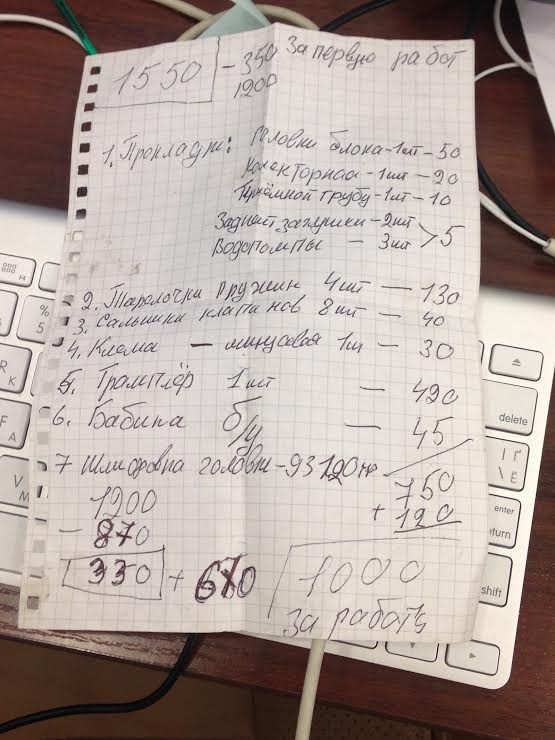 1550 - 350 За первую работ
1200
1. Прокладк: Головки блока - 1шт - 50
Колекторная - 1шт - 20
Приёмной трубы - 1шт - 10
Задней заглушки - 2шт > 5
Водопомпы - 3шт
2. Тарелочки пружин 4шт - 130
3. Сальники клапанов 8шт - 40
4. Клема - минусовая 1шт - 30
5. Трамблёр 1шт - 420
6. Бабина б/у - 45
7 Шлифовка головки - 93 120
750
+ 120
1200
- 870
330 + 670
1000
за работу
% 5
R К
F А
V М
delete
enter
return
shift